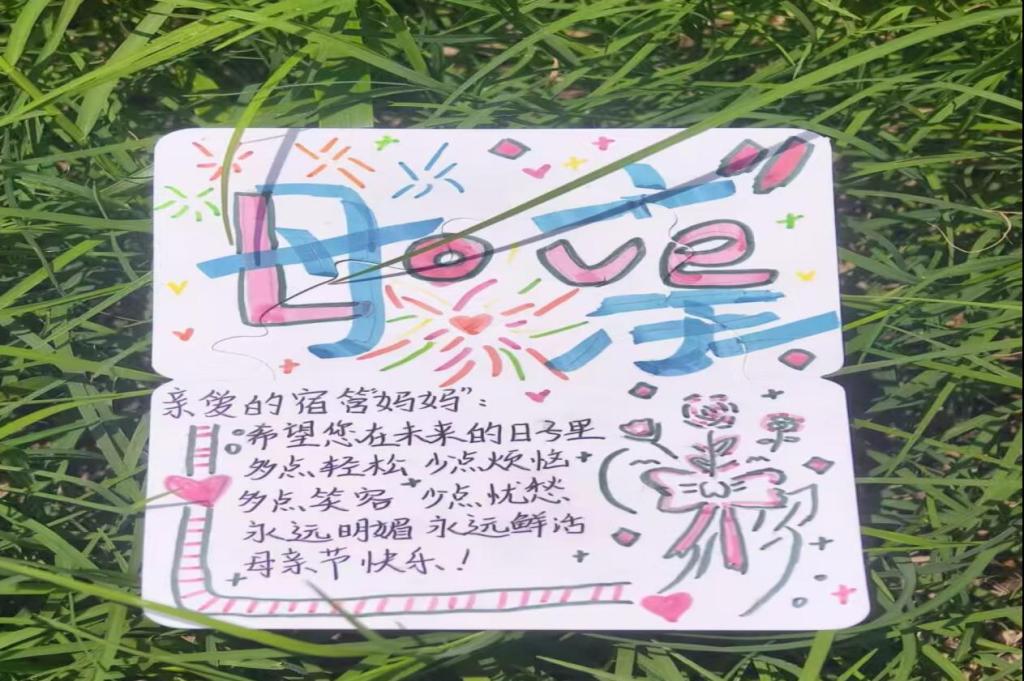 母亲
Love
亲爱的宿管“妈妈”:
希望您在未来的日子里
多点轻松 少点烦恼
多点笑容 少点忧愁
永远明媚 永远鲜活
母亲节快乐！